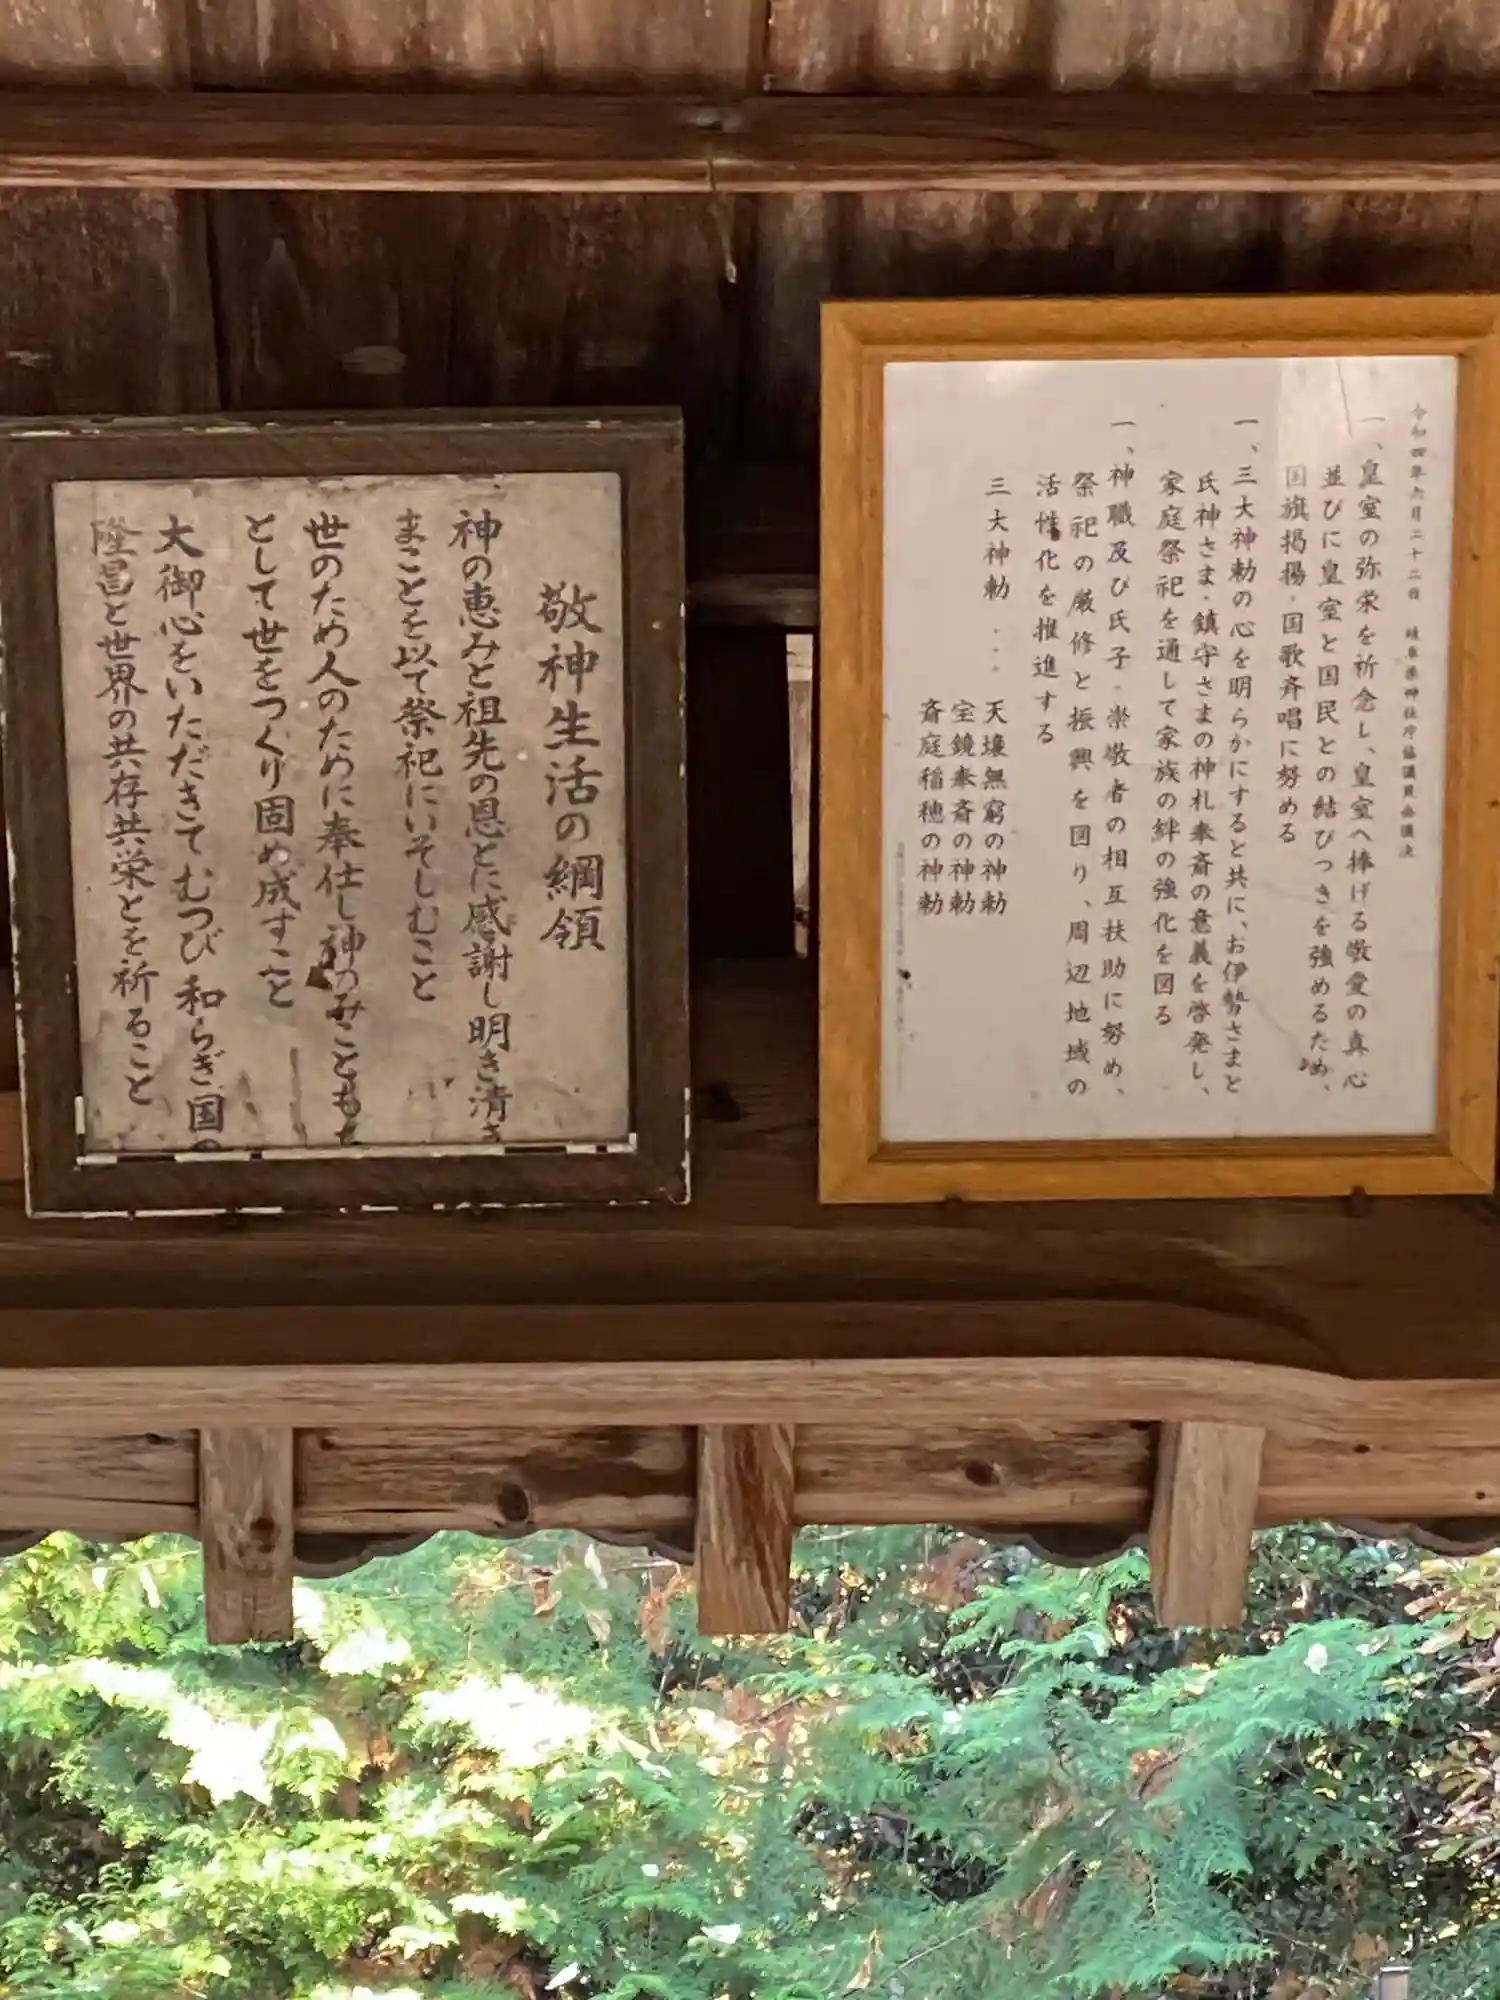 令和四年六月二十二日 岐阜県神社庁協議員会議決
一、皇室の弥栄を祈念し、皇室へ捧げる敬愛の真心
並びに皇室と国民との結びつきを強めるため、
国旗掲揚・国歌斉唱に努める
一、三大神勅の心を明らかにすると共に、お伊勢さまと
氏神さま・鎮守さまの神札奉斎の意義を啓発し、
家庭祭祀を通して家族の絆の強化を図る
一、神職及び氏子・崇敬者の相互扶助に努め、
祭祀の厳修と振興を図り、周辺地域の
活性化を推進する
三大神勅 … 天壌無窮の神勅
宝鏡奉斎の神勅
斎庭稲穂の神勅
敬神生活の綱領
神の恵みと祖先の恩とに感謝し明き清き
まことを以て祭祀にいそしむこと
世のため人のために奉仕し神のみこともち
として世をつくり固め成すこと
大御心をいただきてむつび和らぎ国の
隆昌と世界の共存共栄とを祈ること